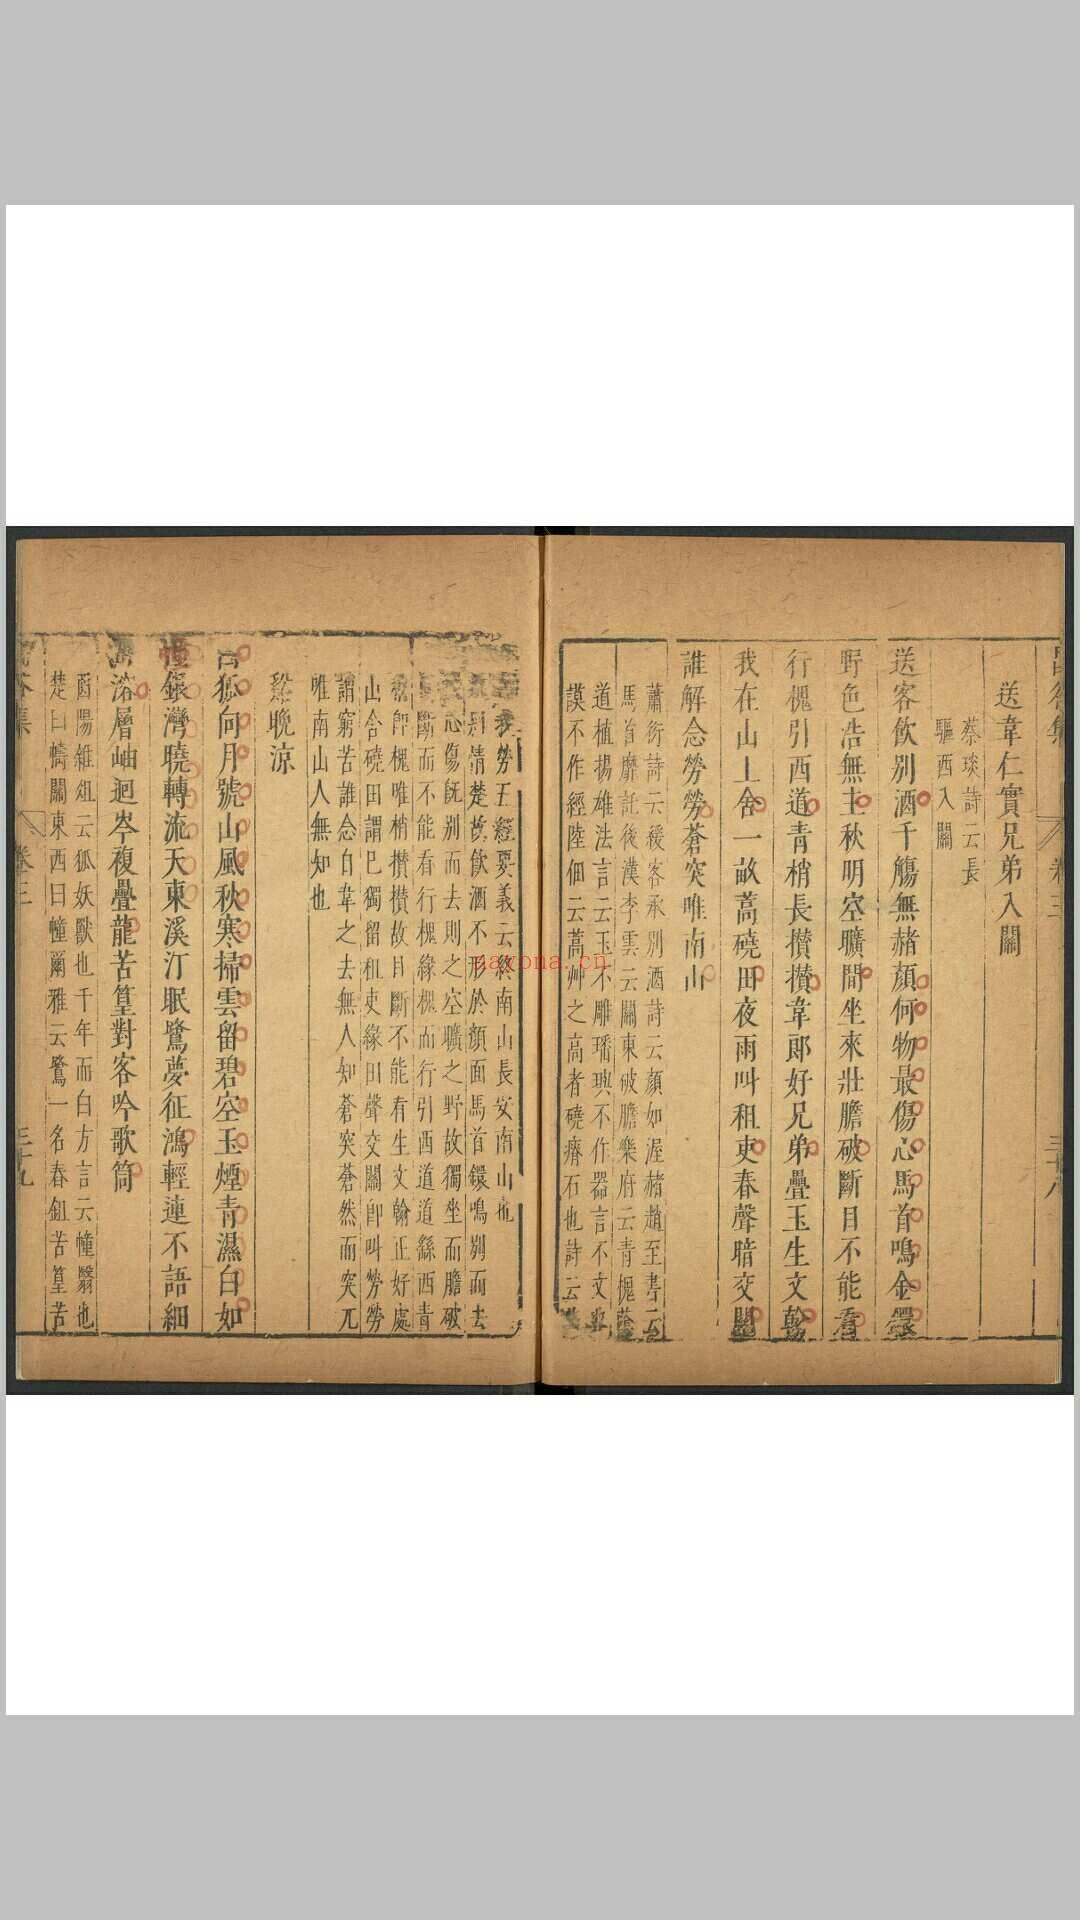 卷三
三十八
送韋仁實兄弟入關
蔡琰詩云長
驅西入關
送客飲別酒千觴無赭顏何物最傷心馬首鳴金鐶
野色浩無主秋明空曠間坐來壯膽破斷目不能看
行槐引西道青梢長攢攢韋郎好兄弟疊玉生文翰
我在山上舍一畝蒿磽田夜雨叫租吏春聲暗交關
誰解念勞勞蒼突唯南山
蕭衍詩云緩客承別酒詩云顏如渥赭趙至書云
馬首靡託後漢李雲云關東破膽樂府云青槐蔭
道植揚雄法言云玉不雕璠璵不作器言不文典
謨不作經陸佃云蒿艸之高者磽瘠石也詩云
勞五經要義云終南山長安南山也
別情楚黃飲酒不形於顏面馬首鐶鳴別而去
心傷既别而去則之空曠之野故獨坐而膽破
斷而不能看行槐緣槐而行引西道道繇西青
即槐唯梢攢攢故目斷不能有生文翰正好處
山舍磽田謂已獨留租吏緣田聲交關即叫勞勞
謂窮苦誰念自韋之去無人知蒼突蒼然而突兀
唯南山人無知也
谿晚涼
狐向月號山風秋寒掃雲留碧空玉煙青濕白如
幢銀灣曉轉流天東溪汀眠鷺夢征鴻輕連不語細
溶層岫迴岑複疊龍苦篁對客吟歌筒
酉陽雜俎云狐妖獸也千年而白方言云幢翳也
楚曰幬關東西曰幢爾雅云鷺一名春鉏苦篁苦
卷三
三十九
nayona.cn